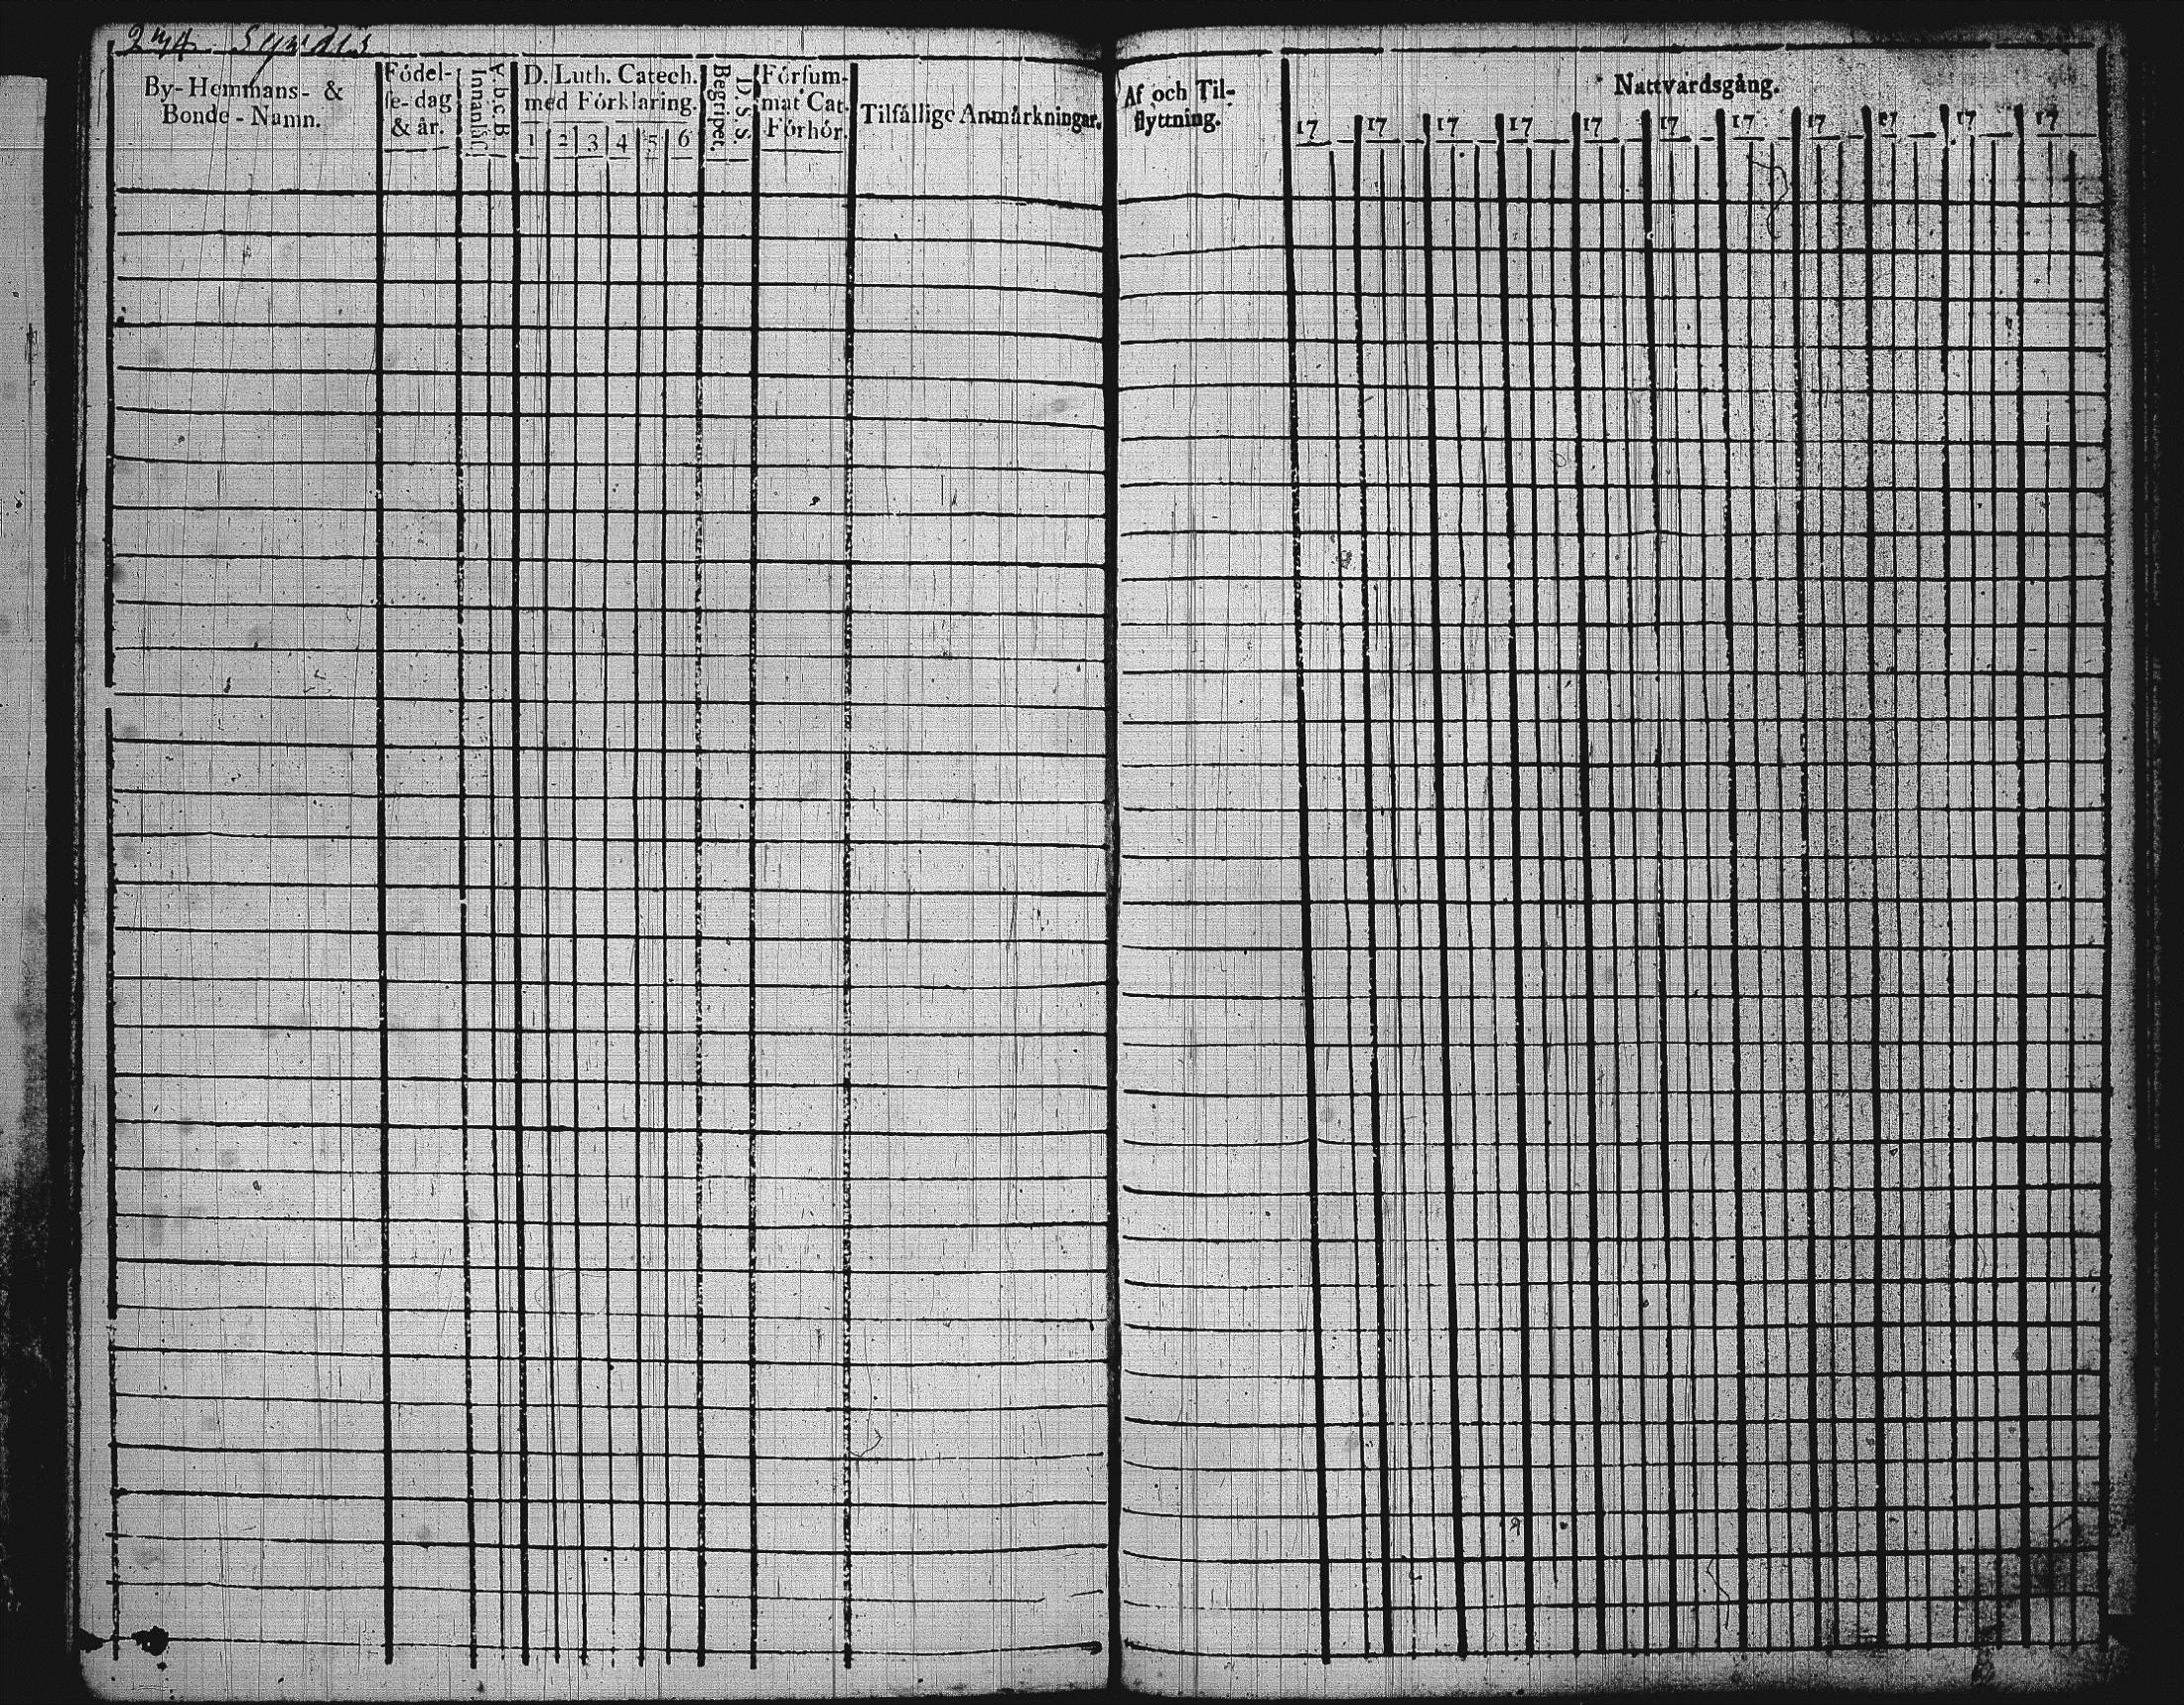 By-Hemmans- &
Bonde-Namn.
Födel-
se-dag
& år.
Innanläs.
A b c B
D. Luth. Catech.
med Förklaring.
1 2 3 4 5 6
Begripet.
D. S. S.
Försum-
mat Cat.
Förhör.
Tilfällige Anmärkningar.
Af och Til-
flyttning.
Nattvardsgång.
17 17 17 17 17 17 17 17 17 17 17